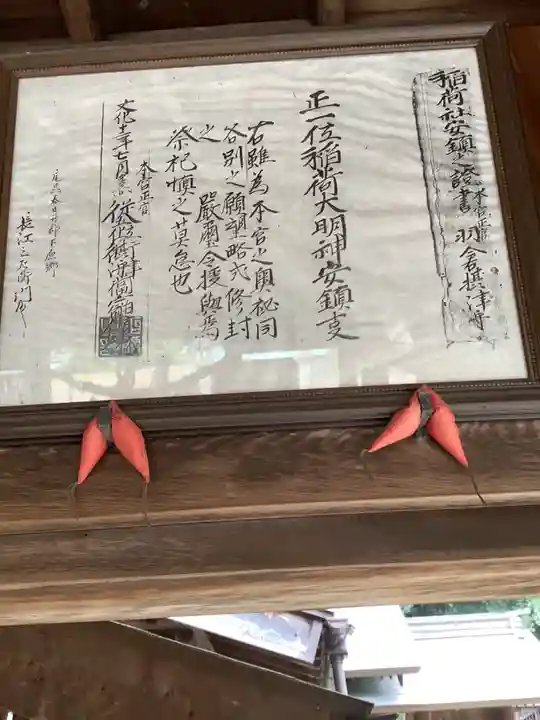 稲荷社安鎮之證書
本宮正官
羽倉摂津守
正一位稲荷大明神安鎮支
右雖為本宮之奥秘同
各別之願望略式修封
之 嚴璽令授與焉
祭祀慎之莫怠也
本宮正官
文化十二年七月
長江三左衛門